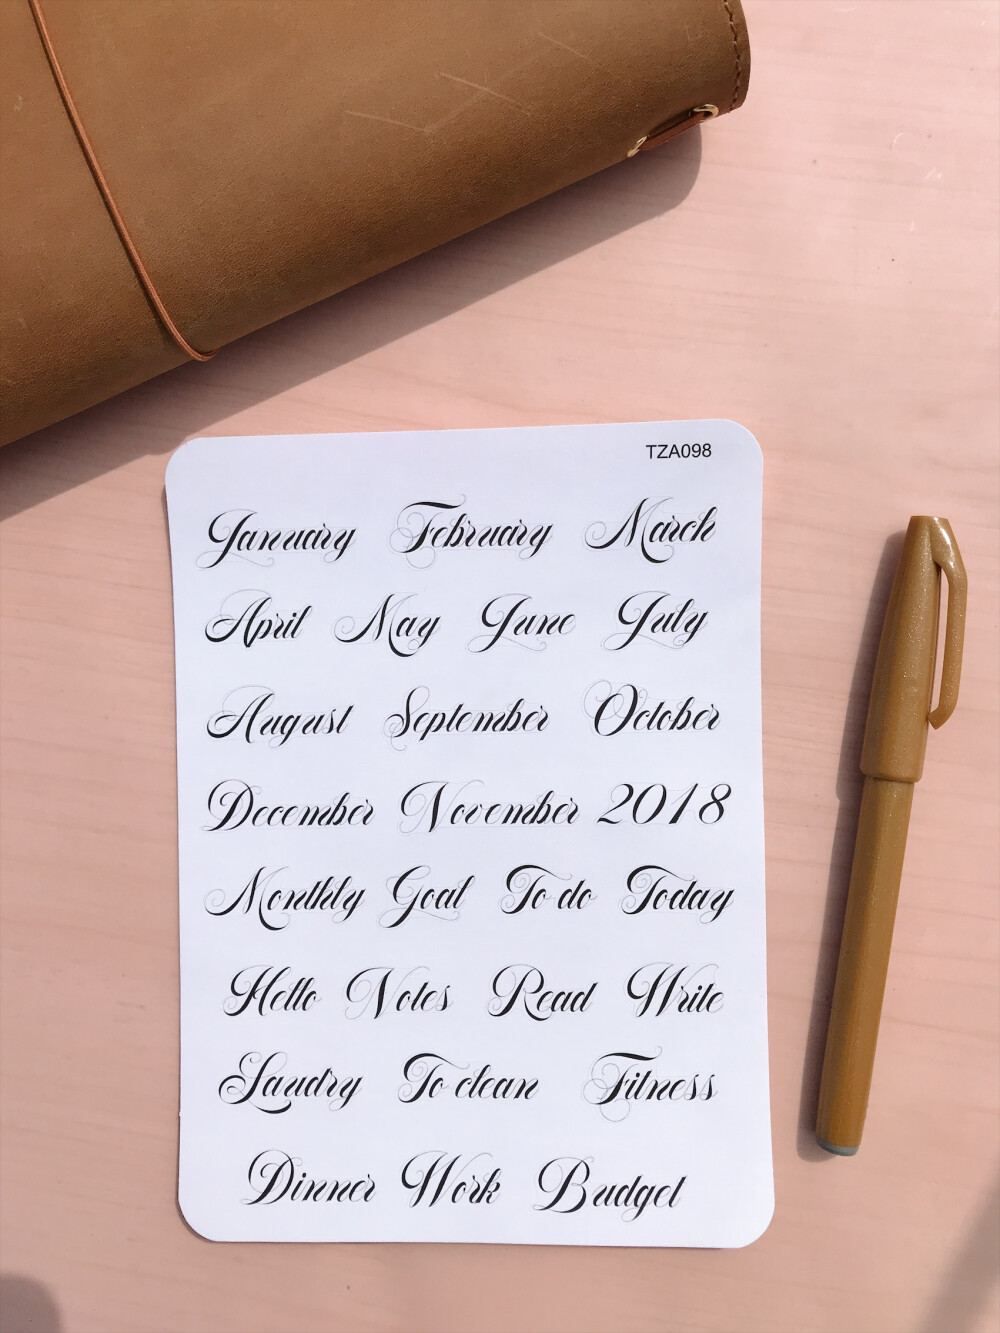 TZA098
January February March
April May June July
August September October
December November 2018
Monthly Goal To do Today
Hello Notes Read Write
Laudry To clean Fitness
Dinner Work Budget